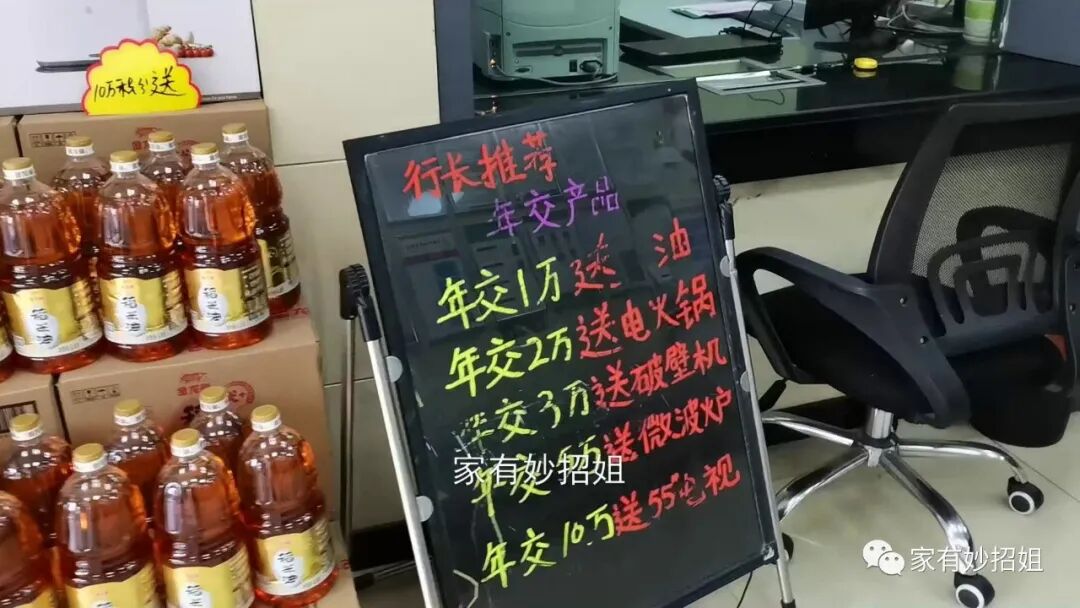 10万积分送
行长推荐
年交产品
年交1万送 油
年交2万送电火锅
年交3万送破壁机
年交 万送微波炉
年交10万送55"电视
家有妙招姐
稻米油
稻米油
稻米油
稻米油
稻米油
家有妙招姐